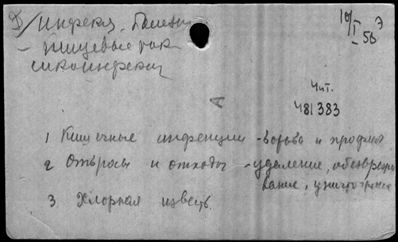 Д/Инфекц. болезн
- пищевые ток
сикоинфекц
10/I - 56 Э
Чит.
481383
1 Кишечные инфекции - борьба и профил
2 Отбросы и отходы - удаление, обезврежи
вание, уничтожение
3 Хлорная известь.